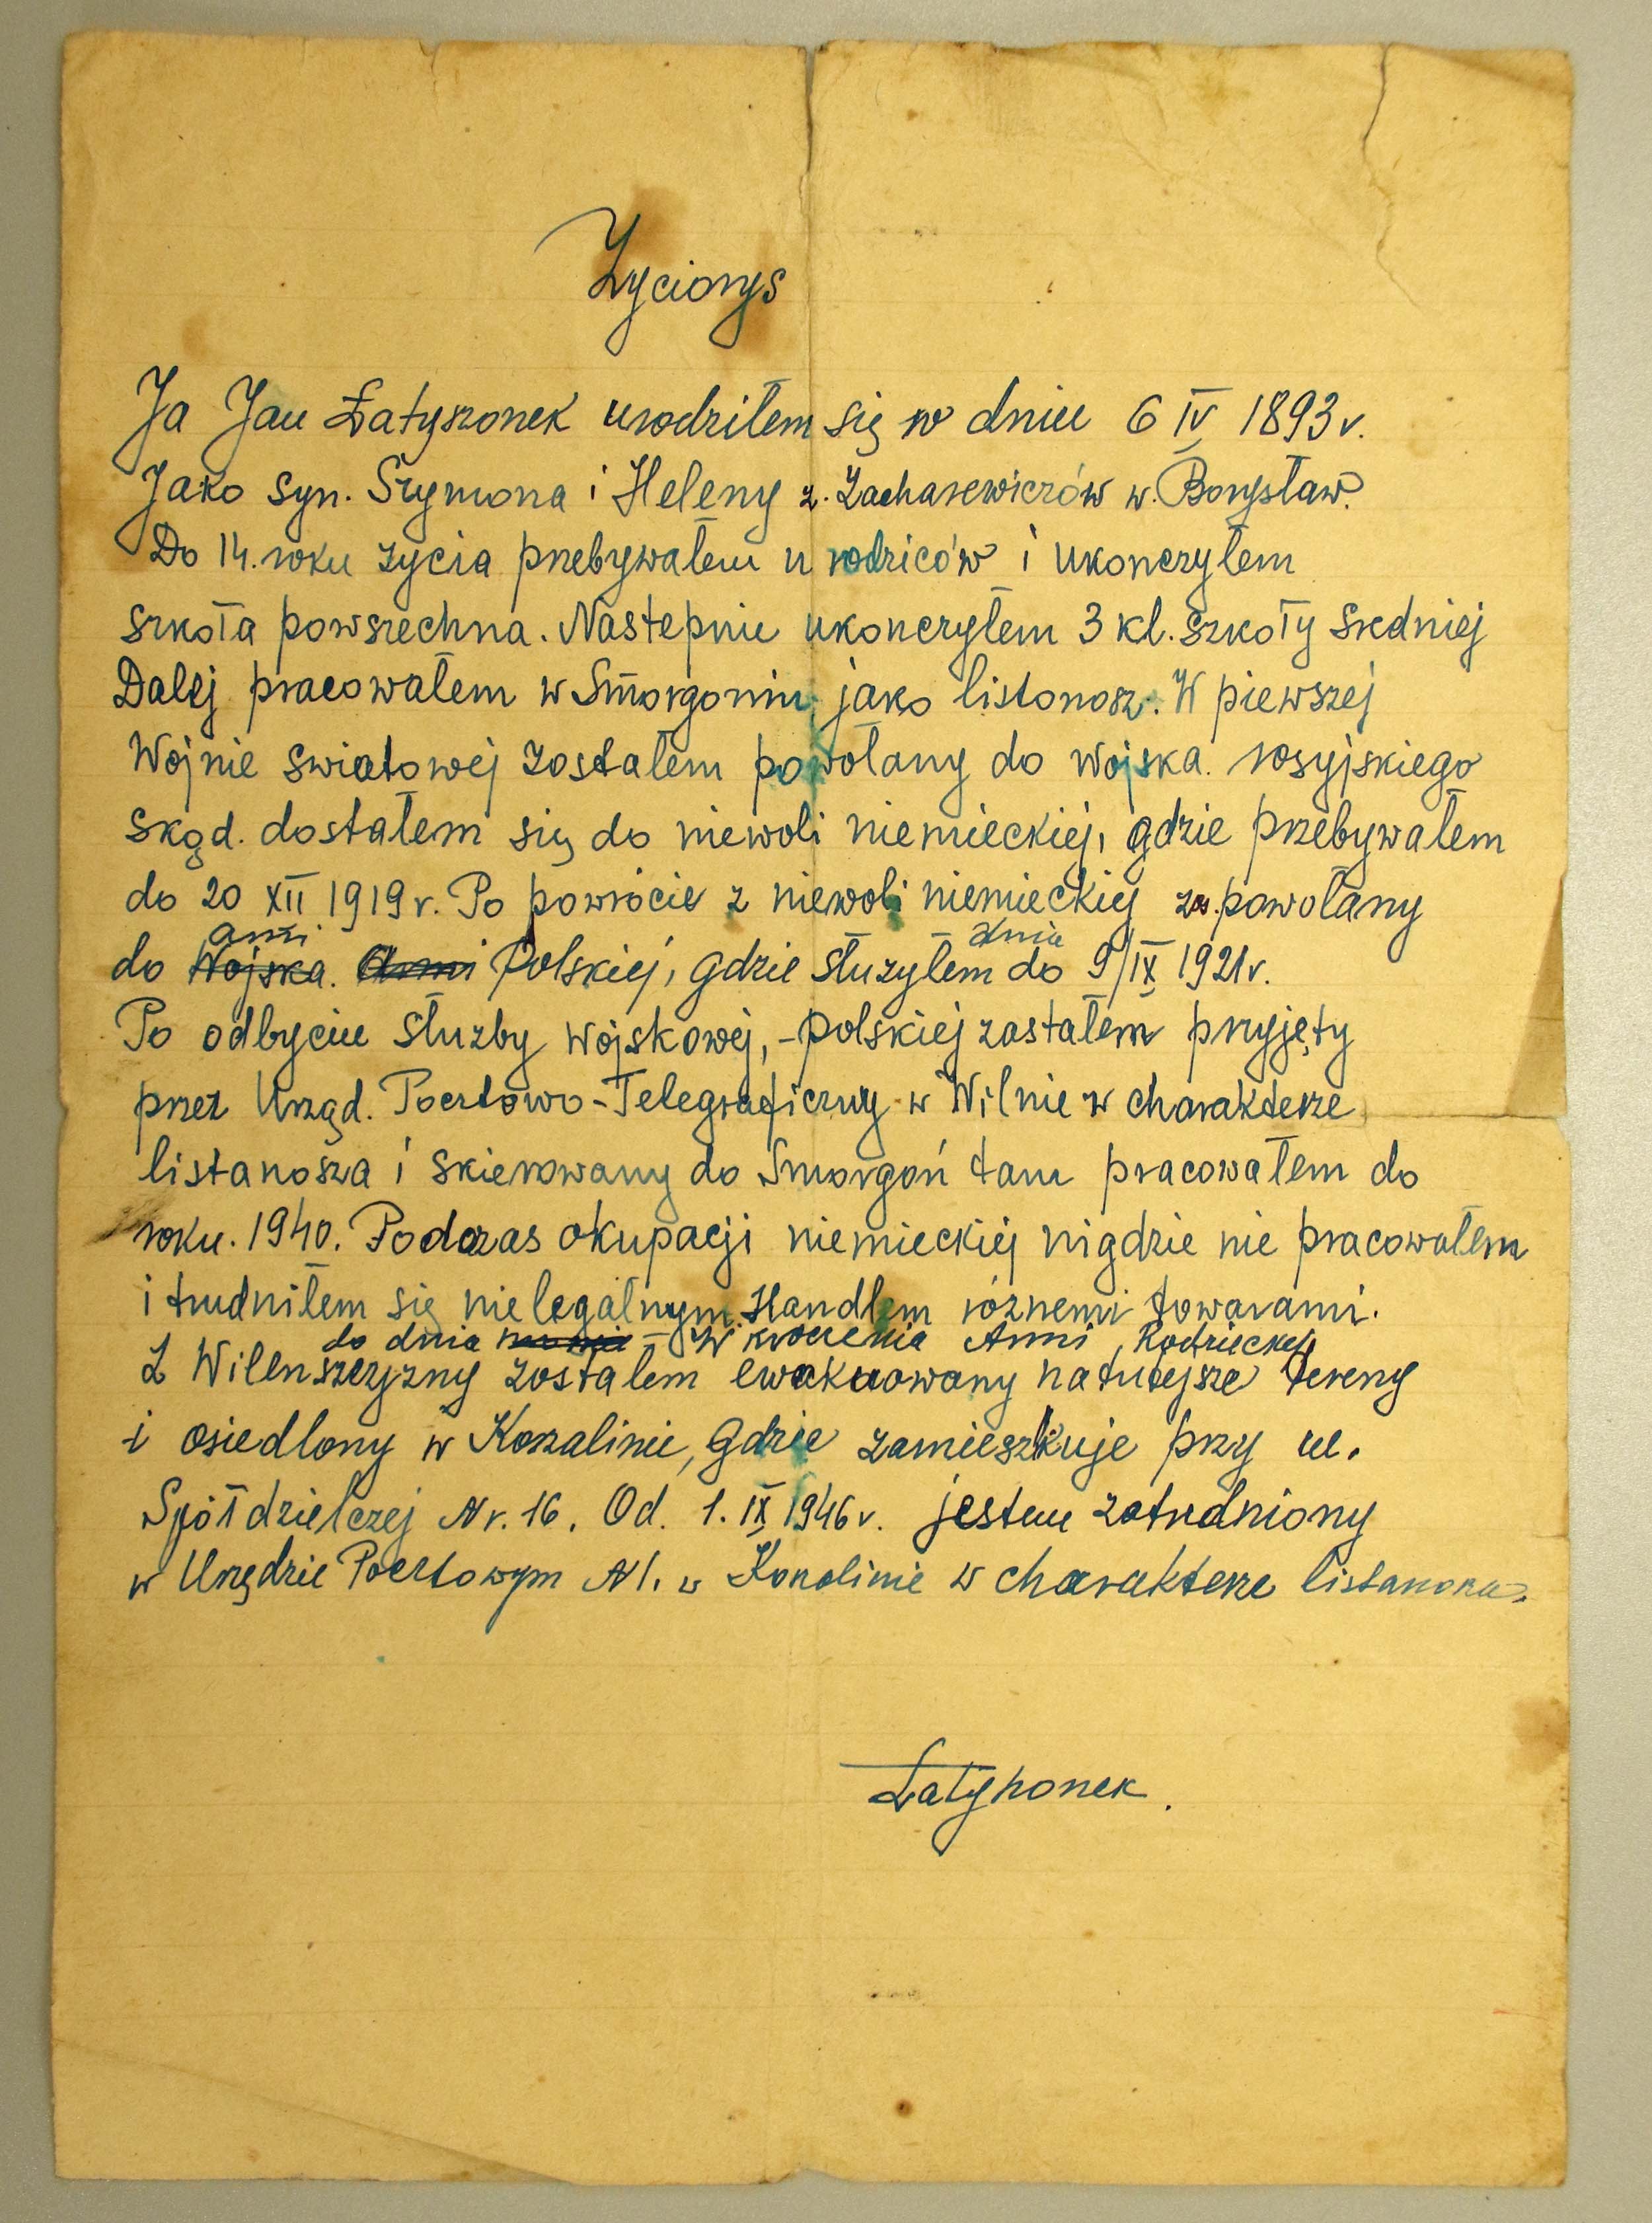 Zyciorys
Ja Jan Łatyszonek urodziłem się w dniu 6 IV 1893 r.
Jako syn. Szymona i Heleny z. Zacharewiczów w. Borysław.
Do 14. roku zycia przebywałem u rodziców i ukonczyłem
szkoła powszechna. Nastepnie ukonczyłem 3 kl. szkoły sredniej
Dalej pracowałem w Smorgoniu jako listonosz. W piewszej
Wojnie swiatowej zostałem powołany do wojska. rosyjskiego
skąd. dostałem się do niewoli niemieckiej, gdzie przebywałem
do 20 XII 1919 r. Po powrócie z niewoli niemieckiej zos. powołany
armi dnia
do Wojska. Armi Polskiej, gdzie słuzyłem do 9/IX 1921 r.
Po odbyciu słuzby wojskowej, - polskiej zostałem przyjęty
przez Urząd. Pocztowo-Telegraficzny w Wilnie w charakterze
listanosza i skierowany do Smorgoń tam pracowałem do
roku. 1940. Podczas okupacji niemieckiej nigdzie nie pracowałem
i trudniłem się nielegalnym. Handlem róznemi towarami.
do dnia W kroczenia Armi Rodzieckej
Z Wilenszczyzny zostałem ewakuowany na tutejsze tereny
i osiedlony w Koszalinie, gdzie zamieszkuje przy ul.
Spółdzielczej Nr. 16. Od. 1. IX 1946 r. jestem zatrudniony
w Urzędzie Pocztowym N 1. w Koszalinie w charakterze listanosza.
Łatyszonek.